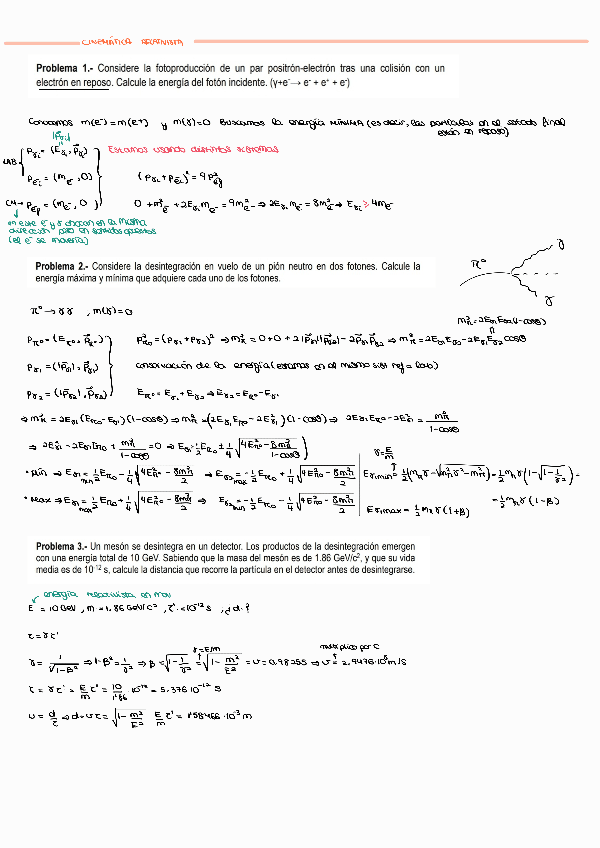 CINEMÁTICA RELATIVISTA
Problema 1.- Considere la fotoproducción de un par positrón-electrón tras una colisión con un
electrón en reposo. Calcule la energía del fotón incidente. (γ+e⁻→ e⁻ + e⁺ + e⁻)
Conocemos m(e⁻)=m(e⁺) y m(γ)=0 Buscamos la energía MÍNIMA (es decir, las partículas en el estado final
están en reposo)
|p⃗γi|
LAB
Pγi = (Eγi, p⃗γi) Estamos usando distintos sistemas
Pei = (me⁻, 0) (Pγi + Pei)² = 9P²ef
CM→ Pef = (me⁻, 0) 0 + m²e⁻ + 2Eγi me⁻ = 9m²e⁻ ⇒ 2Eγi me⁻ = 8m²e⁻ → Eγi ≥ 4me⁻
en este e⁻ y γ chocan en la misma
dirección pero en sentidos opuestos
(el e⁻ se movería)
Problema 2.- Considere la desintegración en vuelo de un pión neutro en dos fotones. Calcule la
energía máxima y mínima que adquiere cada uno de los fotones.
π⁰ γ γ
π⁰ → γγ , m(γ)=0
m²π = 2Eγ1Eγ2(1-cosθ)
Pπ⁰ = (Eπ⁰, p⃗π⁰) P²π⁰ = (Pγ1 + Pγ2)² ⇒ m²π = 0+0+2|p⃗γ1||p⃗γ2| - 2p⃗γ1 p⃗γ2 ⇒ m²π = 2Eγ1Eγ2 - 2Eγ1Eγ2 cosθ
Pγ1 = (|p⃗γ1|, p⃗γ1) conservación de la energía (estamos en el mismo sist ref = lab)
Pγ2 = (|p⃗γ2|, p⃗γ2) Eπ⁰ = Eγ1 + Eγ2 ⇒ Eγ2 = Eπ⁰ - Eγ1
⇒ m²π = 2Eγ1(Eπ⁰ - Eγ1)(1-cosθ) ⇒ m²π = (2Eγ1Eπ⁰ - 2E²γ1)(1-cosθ) ⇒ 2Eγ1Eπ⁰ - 2E²γ1 = m²π/(1-cosθ)
⇒ 2E²γ1 - 2Eγ1Eπ⁰ + m²π/(1-cosθ) = 0 ⇒ Eγ1 = 1/2 Eπ⁰ ± 1/4 √(4E²π⁰ - 8m²π/(1-cosθ))
γ = E/m
• Min ⇒ Eγ1 min = 1/2 Eπ⁰ - 1/4 √(4E²π⁰ - 8m²π/2) ⇒ Eγ2 max = 1/2 Eπ⁰ + 1/4 √(4E²π⁰ - 8m²π/2) Eγ min = 1/2(mπγ - √(m²πγ² - m²π)) = 1/2 mπγ(1 - √(1 - 1/γ²)) =
• Max ⇒ Eγ1 max = 1/2 Eπ⁰ + 1/4 √(4E²π⁰ - 8m²π/2) ⇒ Eγ2 min = 1/2 Eπ⁰ - 1/4 √(4E²π⁰ - 8m²π/2) = 1/2 mπγ(1-β)
Eγ max = 1/2 mπγ(1+β)
Problema 3.- Un mesón se desintegra en un detector. Los productos de la desintegración emergen
con una energía total de 10 GeV. Sabiendo que la masa del mesón es de 1.86 GeV/c², y que su vida
media es de 10⁻¹² s, calcule la distancia que recorre la partícula en el detector antes de desintegrarse.
energía relativista en mov
E = 10 GeV , m = 1.86 GeV/c² , τ' = 10⁻¹² s , ¿d?
τ = γτ'
γ=E/m multiplico por c
γ = 1/√(1-β²) ⇒ 1-β² = 1/γ² ⇒ β = √(1 - 1/γ²) = √(1 - m²/E²) = v = 0.98255 ⇒ v = 2.9476·10⁸ m/s
τ = γτ' = E/m τ' = 10/1'86 · 10⁻¹² = 5.376·10⁻¹² s
v = d/τ ⇒ d = vτ = √(1 - m²/E²) E/m τ' = 1'58466·10⁻³ m